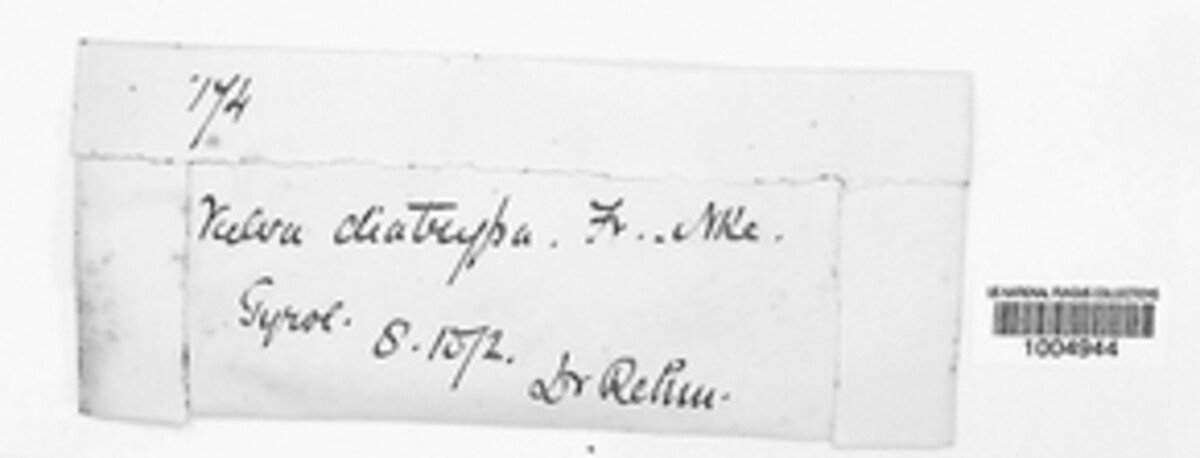 174
Valva diatrypa. Fr.. Nke.
Tyrol. 8.1872.
Dr Rehm.
US NATIONAL FUNGUS COLLECTIONS
1004944